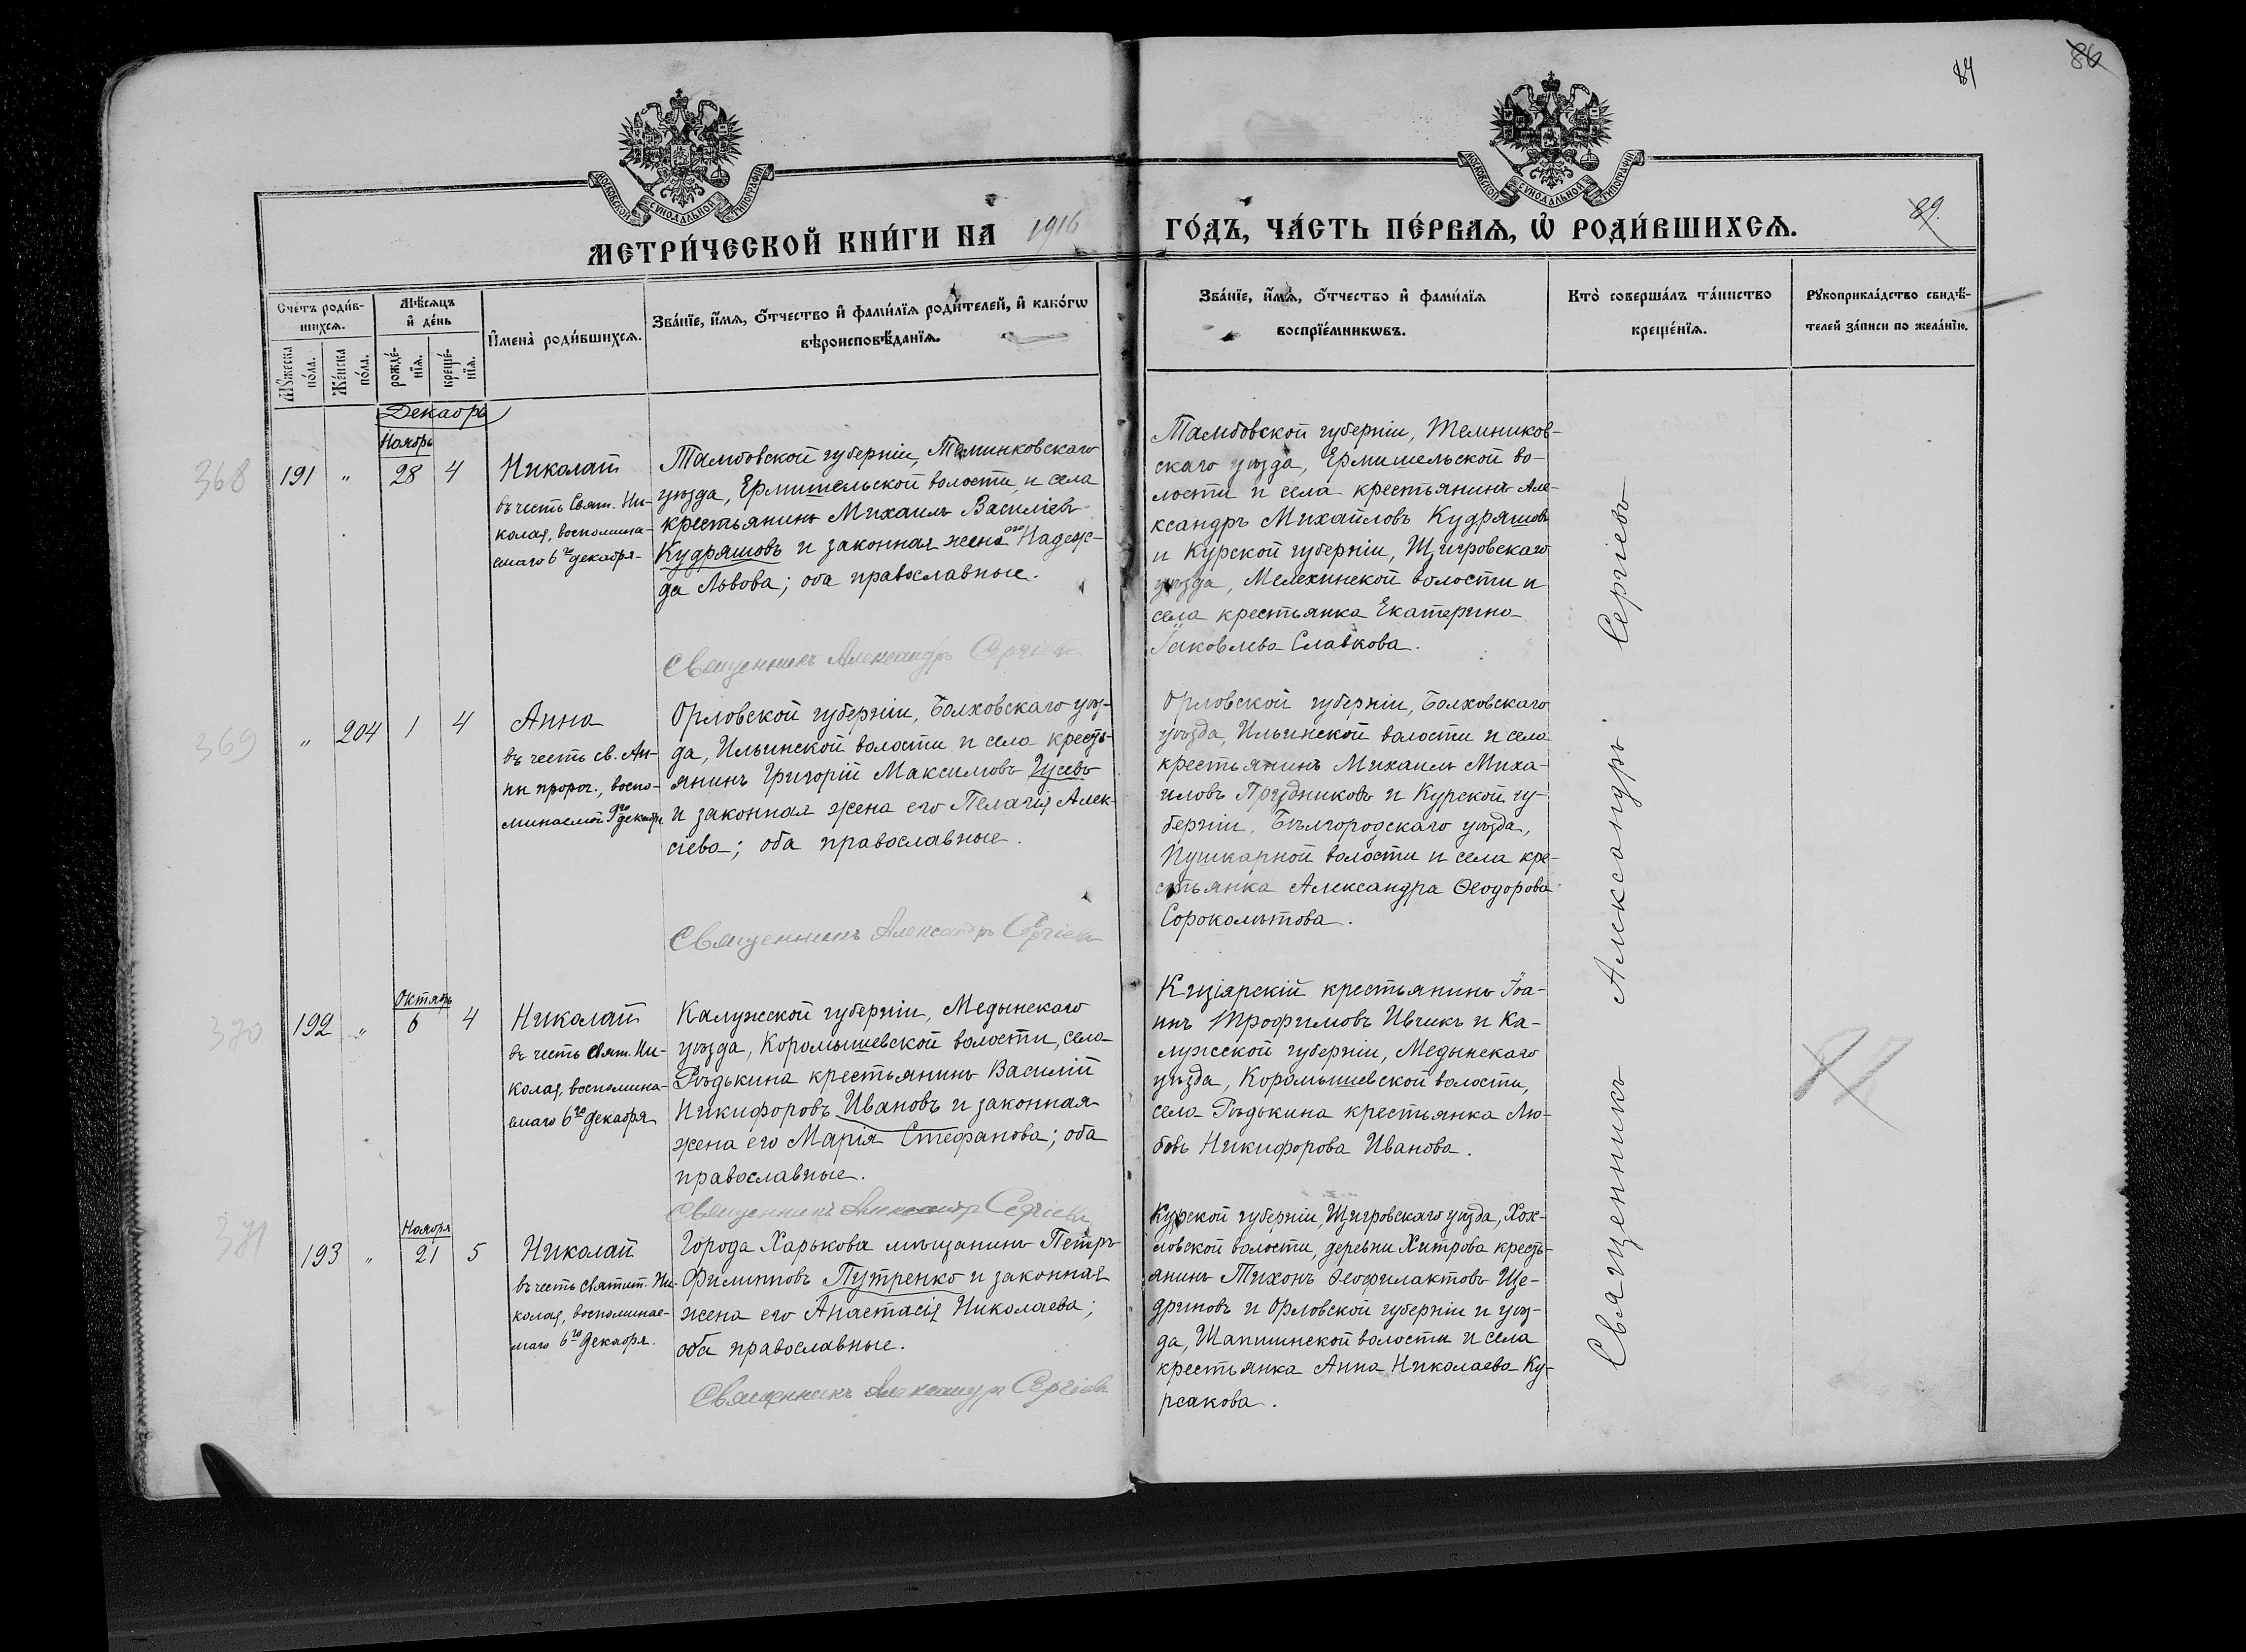 84
86
МОСКОВСКОЙ СѴНОДАЛЬНОЙ ТИПОГРАФІИ
МОСКОВСКОЙ СѴНОДАЛЬНОЙ ТИПОГРАФІИ
МЕТРИ́ЧЕСКОЙ КНИ́ГИ НА 1916 ГО́ДЪ, ЧА́СТЬ ПЕ́РВАѦ, Ѽ РОДИ́ВШИХСѦ.
89.
Сче́тъ роди́в-
шихсѧ.
Мꙋ́жеска
по́ла.
Же́нска
по́ла.
Мѣ́сѧцъ
и҆ де́нь
рожде́-
нїѧ.
креще́-
нїѧ.
И҆мена̀ роди́вшихсѧ.
Зва́нїе, и҆́мѧ, ѻ҆́тчество и҆ фами́лїѧ роди́телей, и҆ како́гѡ
вѣроисповѣ́данїѧ.
Зва́нїе, и҆́мѧ, ѻ҆́тчество и҆ фами́лїѧ
воспрїе́мникѡвъ.
Кто̀ соверша́лъ та́инство
креще́нїѧ.
Рꙋкоприкла́дство свидѣ́-
телей за́писи по жела́нїю.
Декабрь
Ноябрь
368
191 " 28 4
Николай
въ честь Свят. Ни-
колая, воспомина-
емаго 6го декабря
Тамбовской губерніи, Теминковскаго
уѣзда, Ермишельской волости и села
крестьянинъ Михаилъ Василіевъ
Кудряшовъ и законная жена его Надеж-
да Львова; оба православные.
Священникъ Александръ Сергіевъ
Тамбовской губерніи, Темников-
скаго уѣзда, Ермишельской во-
лости и села крестьянинъ Але-
ксандръ Михайловъ Кудряшовъ
и Курской губерніи, Щигровскаго
уѣзда, Мелехинской волости и
села крестьянка Екатерина
Іаковлева Славкова.
369
" 204 1 4
Анна
въ честь св. Ан-
ны прорoч., воспо-
минаемой 9го декабря
Орловской губерніи, Болховскаго уѣз-
да, Ильинской волости и села кресть-
янинъ Григорій Максимовъ Гусевъ
и законная жена его Пелагія Алек-
сіева; оба православные.
Священникъ Александръ Сергіевъ
Орловской губерніи, Болховскаго
уѣзда, Ильинской волости и села
крестьянинъ Михаилъ Миха-
иловъ Прудниковъ и Курской гу-
берніи, Бѣлгородскаго уѣзда,
Пушкарной волости и села кре-
стьянка Александра Ѳеодорова
Сороколѣтова.
Октябрь
370
192 " 6 4
Николай
въ честь Свят. Ни-
колая, воспомина-
емаго 6го декабря
Калужской губерніи, Медынскаго
уѣзда, Коромышевской волости, села
Рѣдькина крестьянинъ Василій
Никифоровъ Ивановъ и законная
жена его Марія Стефанова; оба
православные.
Священникъ Александръ Сергіевъ
Кизіярскій крестьянинъ Іоа-
ннъ Трофимовъ Ивчикъ и Ка-
лужской губерніи, Медынскаго
уѣзда, Коромышевской волости,
села Рѣдькина крестьянка Лю-
бовь Никифорова Иванова.
Ноября
371
193 " 21 5
Николай
въ честь Святит. Ни-
колая, воспоминае-
маго 6го декабря.
Города Харькова мѣщанинъ Петръ
Филипповъ Путренко и законная
жена его Анастасія Николаева;
оба православные.
Священникъ Александръ Сергіевъ
Курской губерніи, Щигровскаго уѣзда, Хох-
ловской волости, деревни Хитрова кресть-
янинъ Тихонъ Ѳеофилактовъ Ще-
дриновъ и Орловской губерніи и уѣз-
да, Шапшинской волости и села
крестьянка Анна Николаева Ку-
рсакова.
Священникъ Александръ Сергіевъ